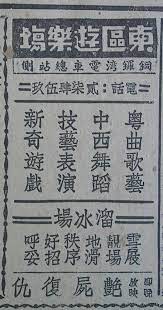 東區遊樂塲
銅鑼灣電車總站側
電話：貳柒肆伍玖
粵曲歌藝
中西舞蹈
技藝表演
新奇遊戲
溜冰場
雪展
靚場
地滑
秩序
好招
呼妥
放映
艷屍復仇